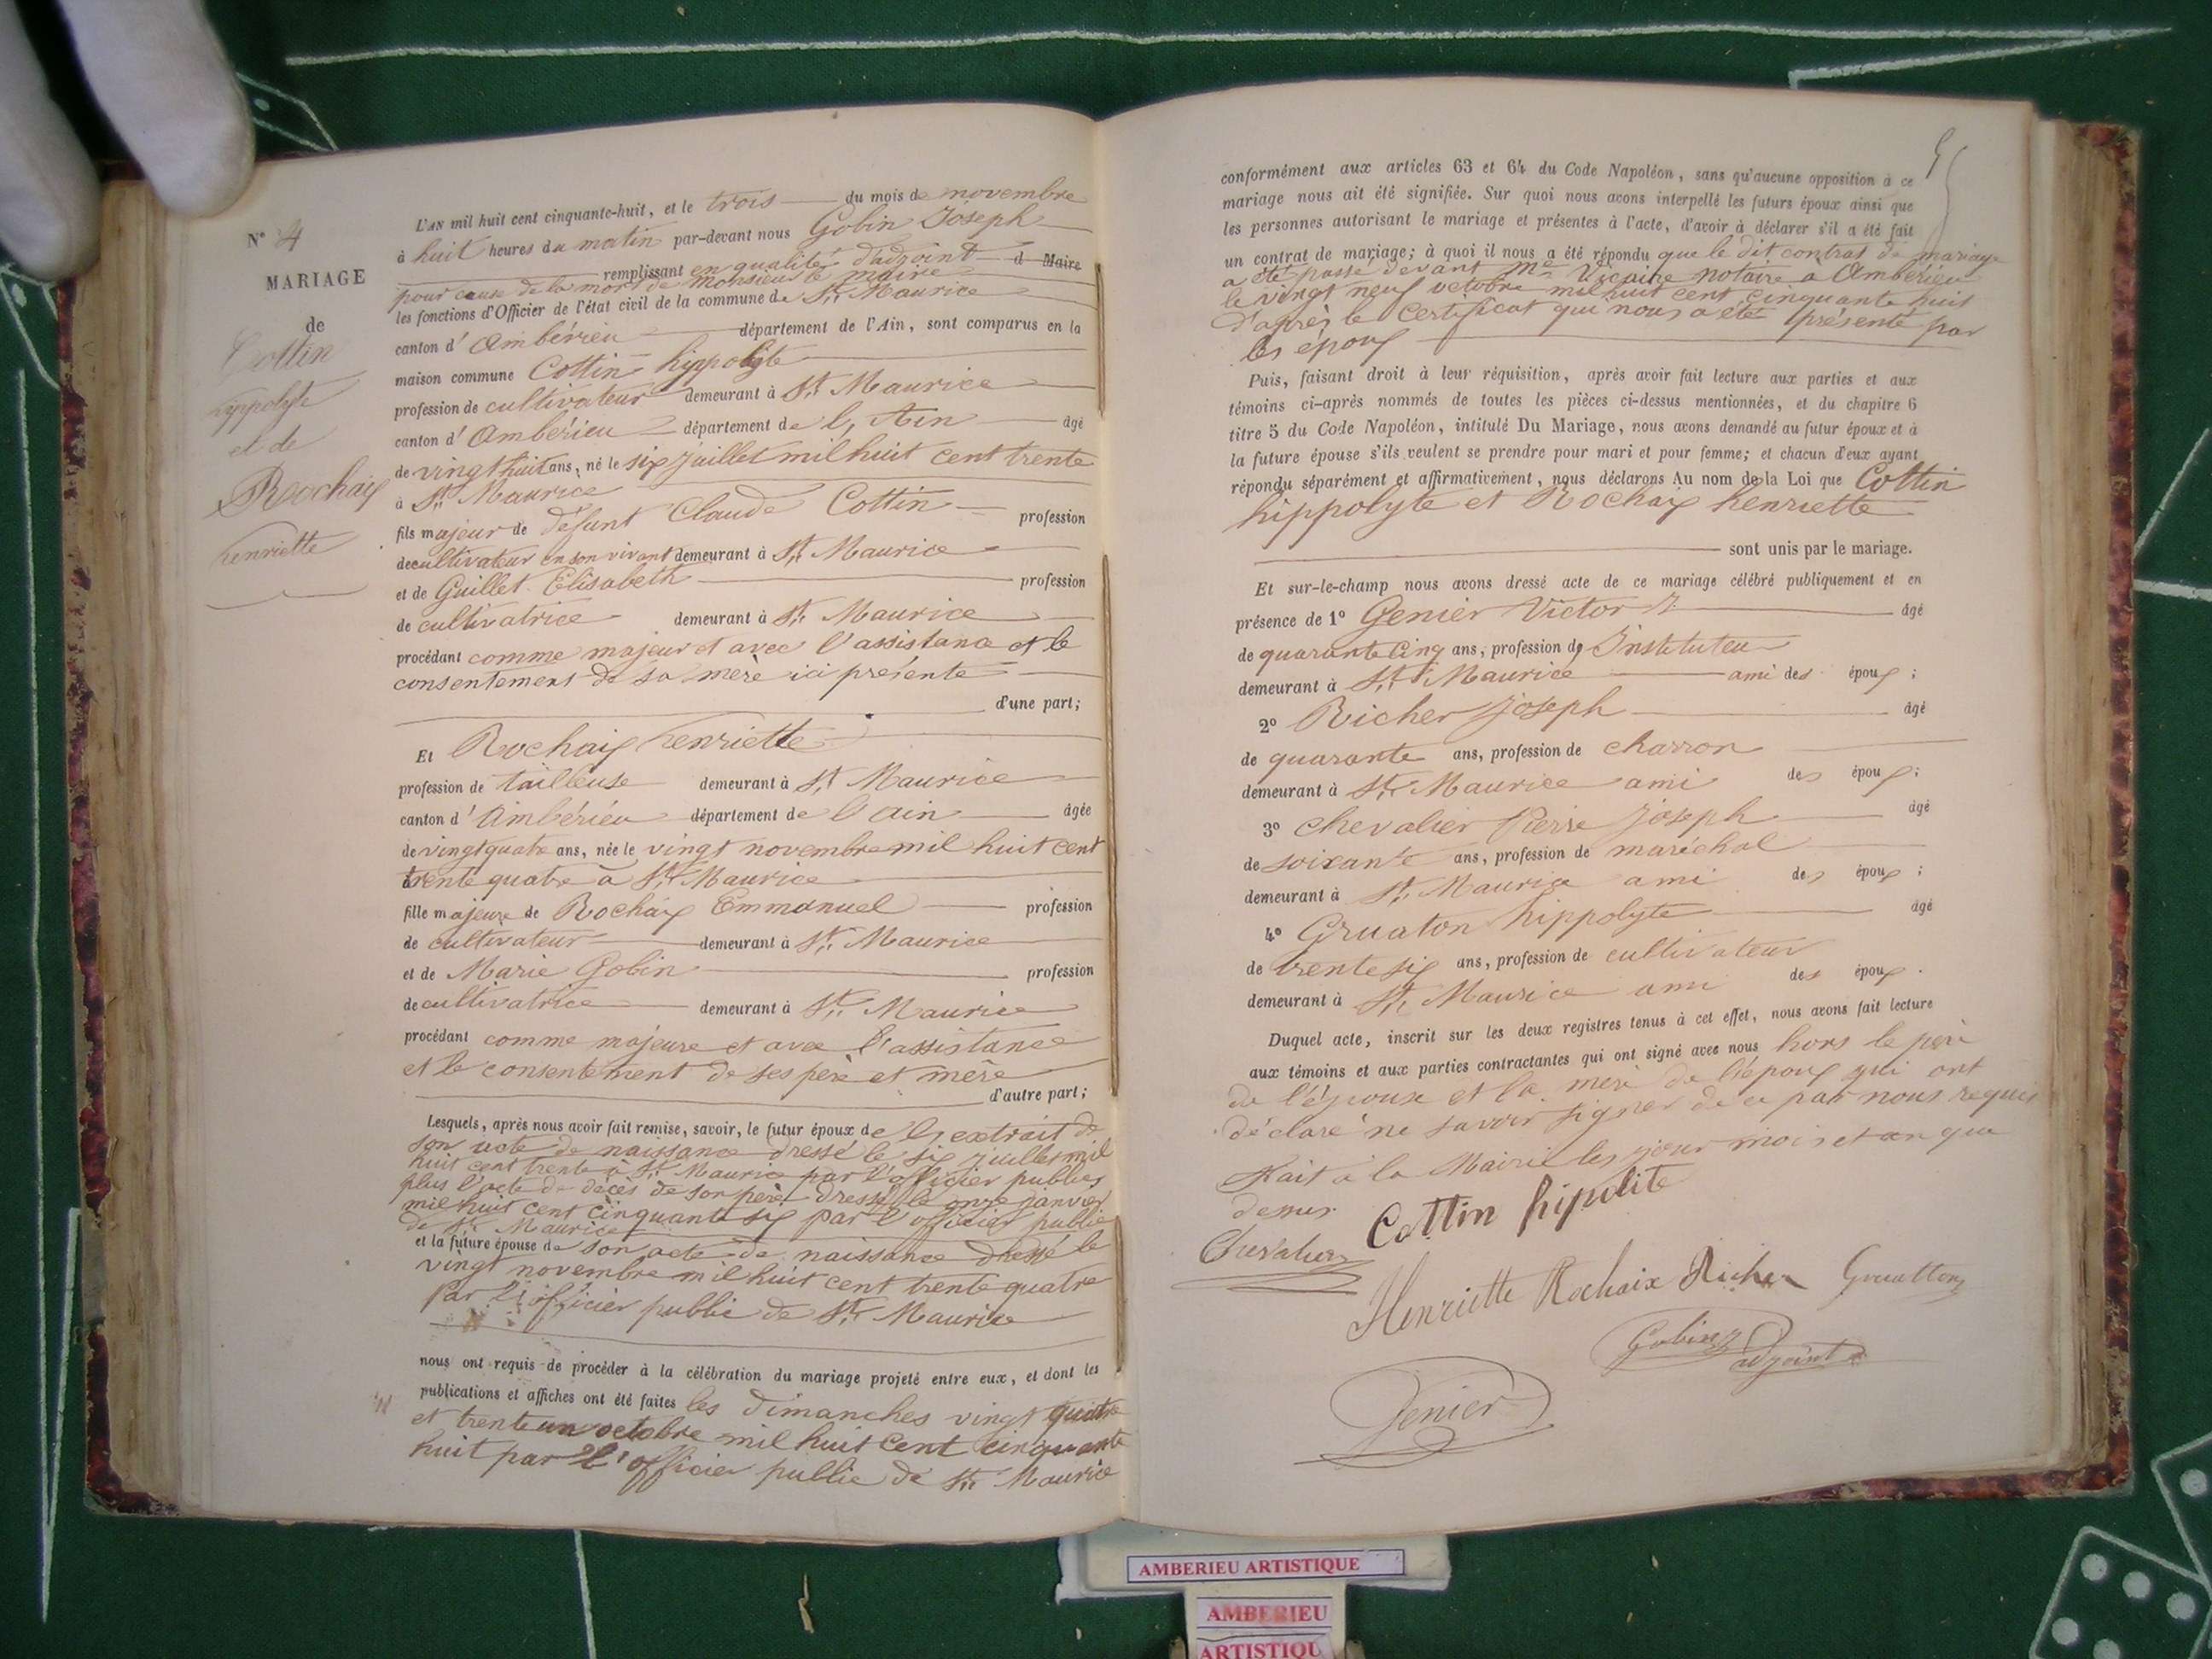 N° 4
MARIAGE
de
Cottin
hippolyte
et de
Rochaix
henriette
L'AN mil huit cent cinquante-huit, et le trois du mois de novembre
à huit heures du matin par-devant nous Gobin Joseph
remplissant en qualité d'adjoint d Maire
pour cause de la mort de Monsieur le maire
les fonctions d'Officier de l'état civil de la commune de St. Maurice
canton d'Ambérieu département de l'Ain, sont comparus en la
maison commune Cottin hippolyte
profession de cultivateur demeurant à St. Maurice
canton d'Ambérieu département de l, Ain âgé
de vingt huit ans, né le six juillet mil huit cent trente
à St. Maurice
fils majeur de défunt Claude Cottin profession
de cultivateur en son vivant demeurant à St. Maurice
et de Guillet Elisabeth profession
de cultivatrice demeurant à St. Maurice
procédant comme majeur et avec l'assistance et le
consentement de sa mère ici présente
d'une part;
Et Rochaix henriette
profession de tailleuse demeurant à St. Maurice
canton d'Ambérieu département de l'ain âgée
de vingt quatre ans, née le vingt novembre mil huit cent
trente quatre à St. Maurice
fille majeure de Rochaix Emmanuel profession
de cultivateur demeurant à St. Maurice
et de Marie Gobin profession
de cultivatrice demeurant à St. Maurice
procédant comme majeure et avec l'assistance
et le consentement de ses père et mère
d'autre part;
Lesquels, après nous avoir fait remise, savoir, le futur époux de l, extrait de
son acte de naissance dressé le six juillet mil
huit cent trente à St. Maurice par l'officier public,
plus l'acte de décès de son père dressé le onze janvier
mil huit cent cinquante six par l'officier public
de St. Maurice
et la future épouse de son acte de naissance dressé le
vingt novembre mil huit cent trente quatre
par l'officier public de St. Maurice
nous ont requis de procéder à la célébration du mariage projeté entre eux, et dont les
publications et affiches ont été faites les dimanches vingt quatre
et trente un octobre mil huit cent cinquante
huit par l'officier public de St. Maurice
conformément aux articles 63 et 64 du Code Napoléon, sans qu'aucune opposition à ce
mariage nous ait été signifiée. Sur quoi nous avons interpellé les futurs époux ainsi que
les personnes autorisant le mariage et présentes à l'acte, d'avoir à déclarer s'il a été fait
un contrat de mariage; à quoi il nous a été répondu que le dit contrat de mariage
a été passé devant Me Vicaire notaire a Ambérieu
le vingt neuf octobre mil huit cent cinquante huit
d'après le certificat qui nous a été présenté par
les époux
Puis, faisant droit à leur réquisition, après avoir fait lecture aux parties et aux
témoins ci-après nommés de toutes les pièces ci-dessus mentionnées, et du chapitre 6
titre 5 du Code Napoléon, intitulé Du Mariage, nous avons demandé au futur époux et à
la future épouse s'ils veulent se prendre pour mari et pour femme; et chacun d'eux ayant
répondu séparément et affirmativement, nous déclarons Au nom de la Loi que Cottin
hippolyte et Rochaix henriette
sont unis par le mariage.
Et sur-le-champ nous avons dressé acte de ce mariage célébré publiquement et en
présence de 1° Genier Victor J. âgé
de quarante cinq ans, profession d, Instituteur
demeurant à St. Maurice ami des époux;
2° Richer Joseph âgé
de quarante ans, profession de charron
demeurant à St. Maurice ami des époux;
3° Chevalier Pierre Joseph âgé
de soixante ans, profession de maréchal
demeurant à St. Maurice ami des époux;
4° Gruaton hippolyte âgé
de trente six ans, profession de cultivateur
demeurant à St. Maurice ami des époux.
Duquel acte, inscrit sur les deux registres tenus à cet effet, nous avons fait lecture
aux témoins et aux parties contractantes qui ont signé avec nous hors le père
de l'épouse et la mère de l'époux qui ont
déclaré ne savoir signer de ce par nous requis
Fait à la Mairie les jour mois et an que
dessus.
Cottin hipolite
Chevalier
Henriette Rochaix Richer Gruatton
Gobin J
adjoint
Genier
AMBERIEU ARTISTIQUE
AMBERIEU
ARTISTIQU